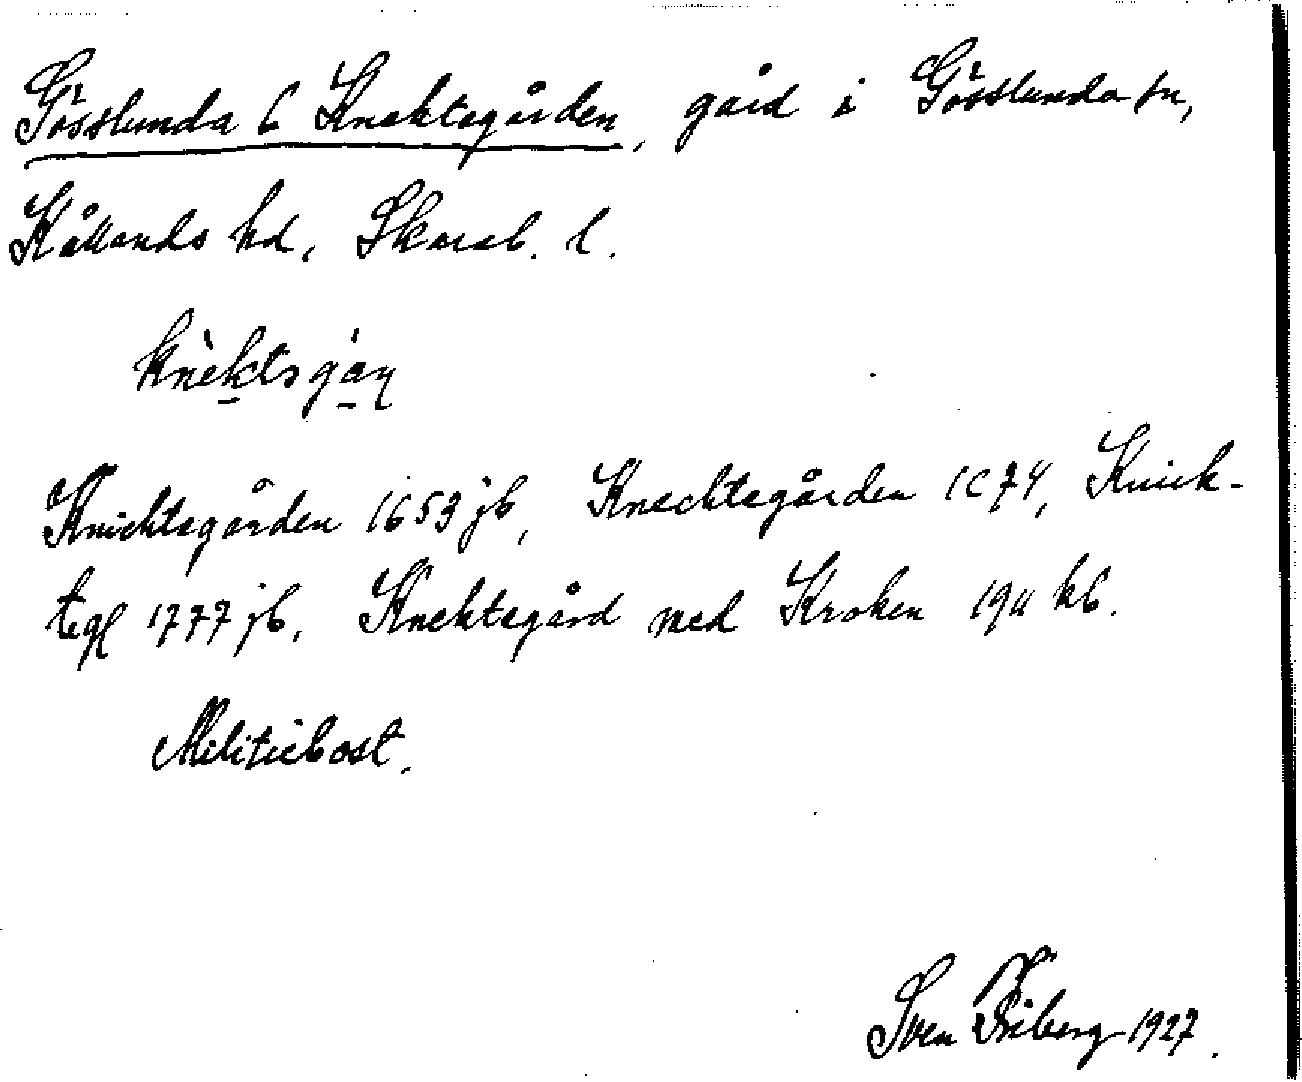 Gösslunda 6 Knektegården, gård i Gösslunda sn,
Kållands hd, Skarab. l.
knèktsgàṇ
Knichtegården 1653 jb, Knechtegården 1674, Knick-
tegl 1777 jb. Knektegård med Kroken 1911 kb.
Militiebost.
Sven Friberg 1927.